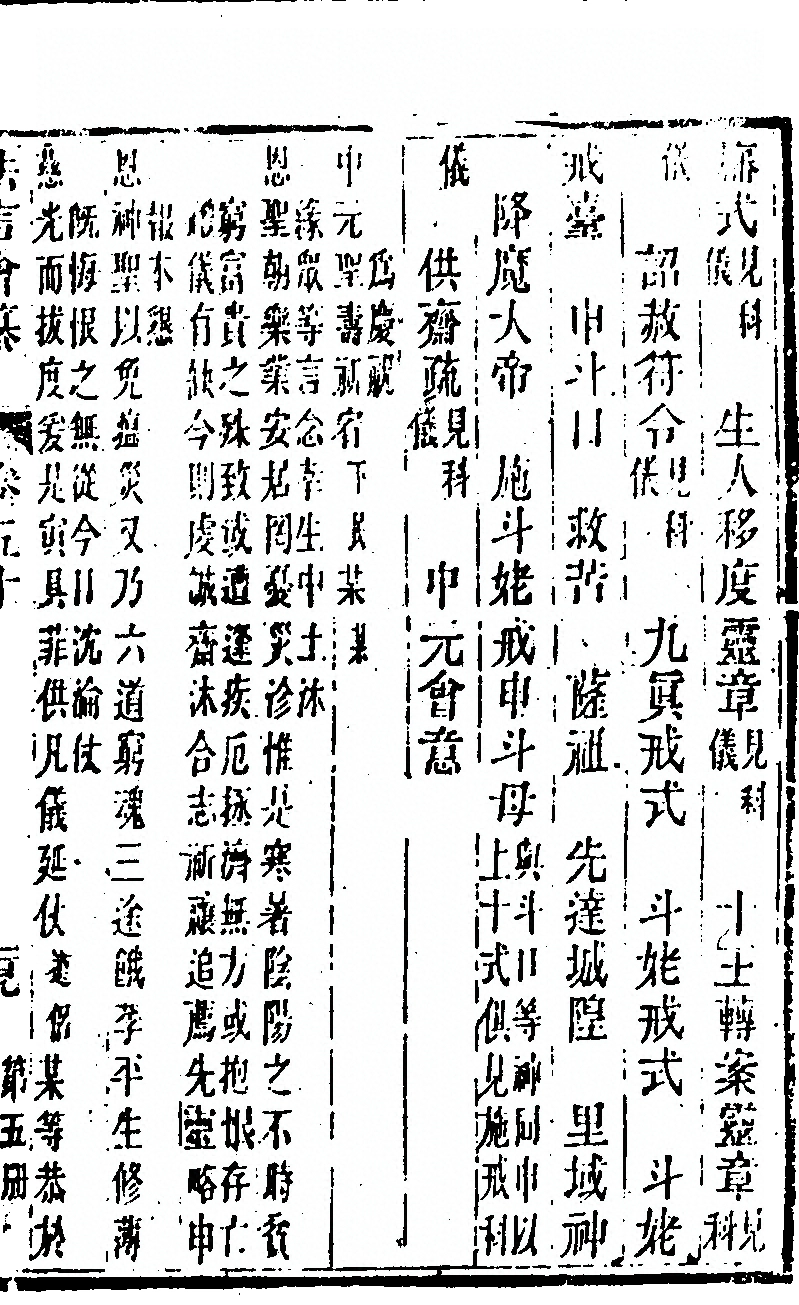 式見科儀　生人移度靈章見科儀　十王轉案靈章見科
儀　詔赦符令見科儀　九冥戒式　斗姥戒式　斗姥
戒臺　申斗口　救苦　薩祖　先達城隍　里域神
降魔大帝　施斗姥戒申斗母與斗口等神同申以上十式俱見施戒科
儀　供齋疏見科儀　中元會意
為慶祝
中元聖壽祈宥下民某某
滌眾等言念幸生中土沐
恩聖朝樂業安居罔憂災診惟是寒暑陰陽之不時
窮富貴之殊致或遭逢疾厄拯濟無力或抱恨存亡
儀有缺今則虔誠齋沐合志祈禳追薦先靈略申
報本懇
恩神聖以免瘟災又乃六道窮魂三途餓莩平生修薄
既悔恨之無從今日沈淪仗
慈光而拔度爰是寅具菲供凡儀延仗道侶某等恭於
法言會纂　卷五十　第五册